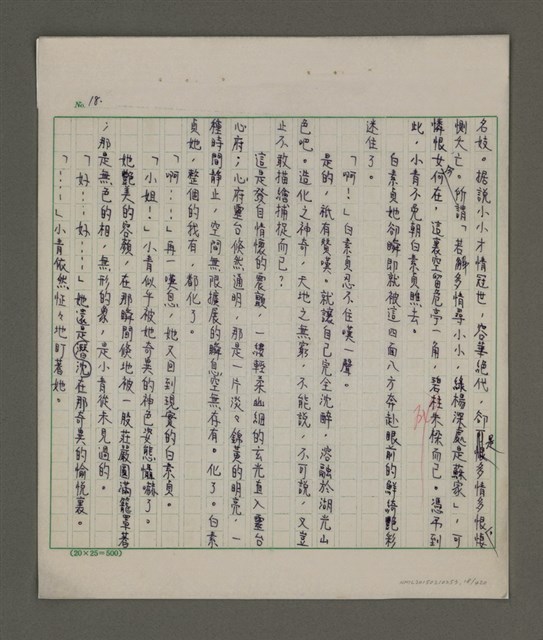 No. 18.
名妓。据說小小才情冠世,容華絕代,卻是多情多恨,悒
惻夭亡。所謂「若解多情尋小小,綠楊深處是蘇家」,可
憐恨女何在,這裏空留危亭一角,碧柱朱樑而已。憑弔到
此,小青不免朝白素貞瞧去。
白素貞她卻瞬即就被這四面八方奔赴眼前的鮮綺艷彩
迷住了。
「啊!」白素貞忍不住嘆一聲。
是的,祇有贊嘆。就讓自己完全沈醉,溶融於湖光山
色吧。造化之神奇,天地之無窮,不能說,不可說,又豈
止不敢描繪捕捉而已?
這是發自情懷的震顫,一縷輕柔幽細的玄光直入靈台
心府;心府靈台倏然通明,那是一片淡、錦簇的明亮,一
種時間靜止,空間無限擴展的瞬息空無存有。化了。白素
貞她,整個的我有,都化了。
「啊……」再一嘆息,她又回到現實的白素貞。
「小姐!」小青似乎被她奇異的神色姿態懾嚇了。
她艷美的容顏,在那瞬間倏地被一股莊嚴圓滿籠罩著
;那是無色的相,無形的象,是小青從未見過的。
「好……好……」她還是潛沈在那奇異的愉悅裏。
「……」小青依然怔怔地盯著她。
(20×25=500)